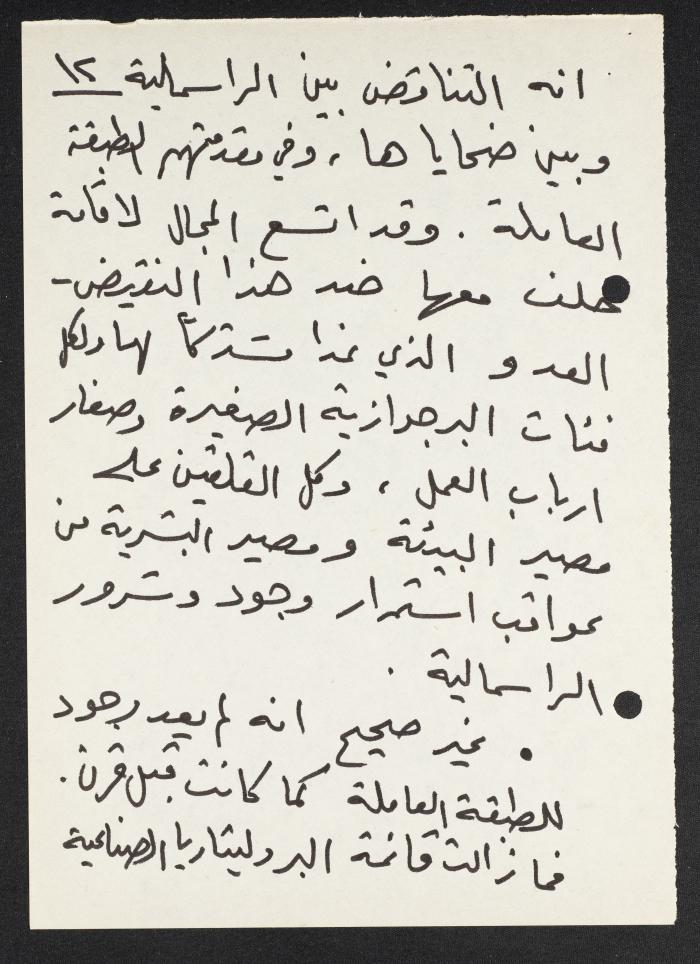 ١٢
انه التناقض بين الراسمالية
وبين ضحاياها ، وفي مقدمتهم الطبقة
العاملة . وقد اتسع المجال لاقامة
حلف معها ضد هذا النقيض -
العدو الذي غدا مشتركاً لها ولكل
فئات البرجوازية الصغيرة وصغار
ارباب العمل ، وكل القلقين على
مصير البيئة ومصير البشرية من
عواقب استمرار وجود وشرور
الراسمالية .
• غير صحيح انه لم يعد وجود
للطبقة العاملة كما كانت قبل قرن .
فما زالت قائمة البروليتاريا الصناعية